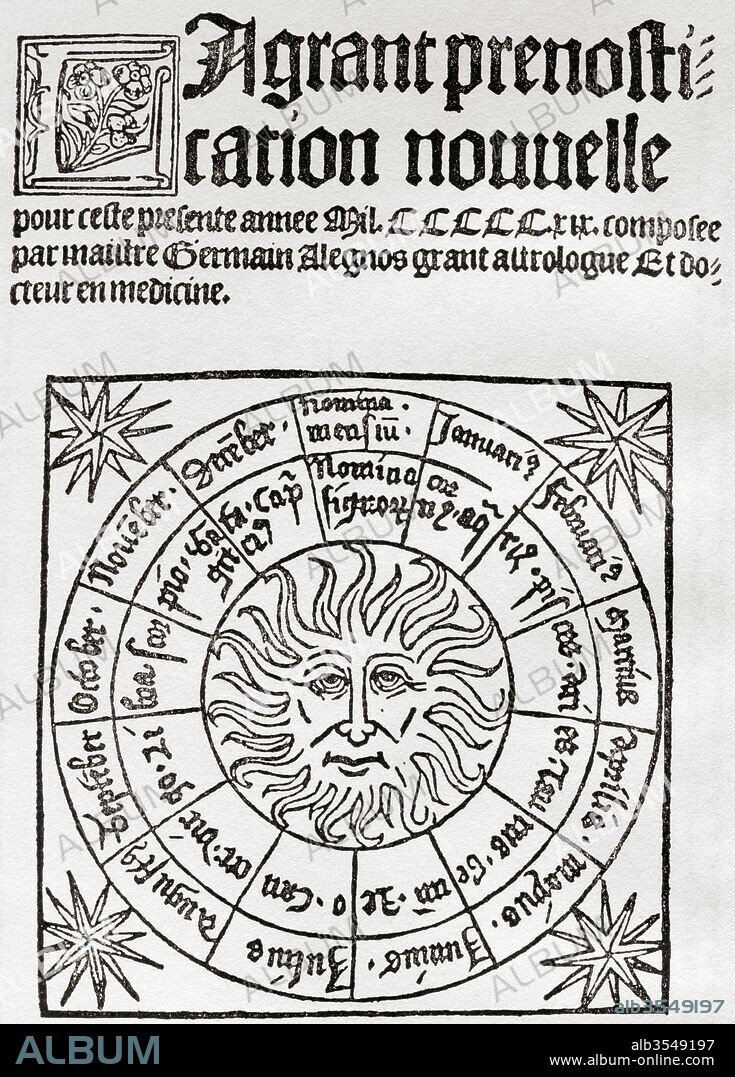 LA grant prenosti⸗
cation nouuelle
pour ceste presente annee Mil. CCCCC.xix. composee
par maistre Germain Alegnos grant astrologue Et do⸗
cteur en medicine.
Nomina
mensiū.
Januariꝰ
Februariꝰ
Martius
Aprilis.
Mayus.
Junius.
Julius
Augustꝰ
September
October.
Nouēber.
Decēber.
Nomina
aq̄
ri⁹. pis
ces. Ari
es. Tau
rus. Ge
mi. Le
o. Can
cer. vir
go. Li
bra scor
pio. Sagi
Cap̄
ALBUM
alb3549197
ALBUM
alb3549197
www.album-online.com